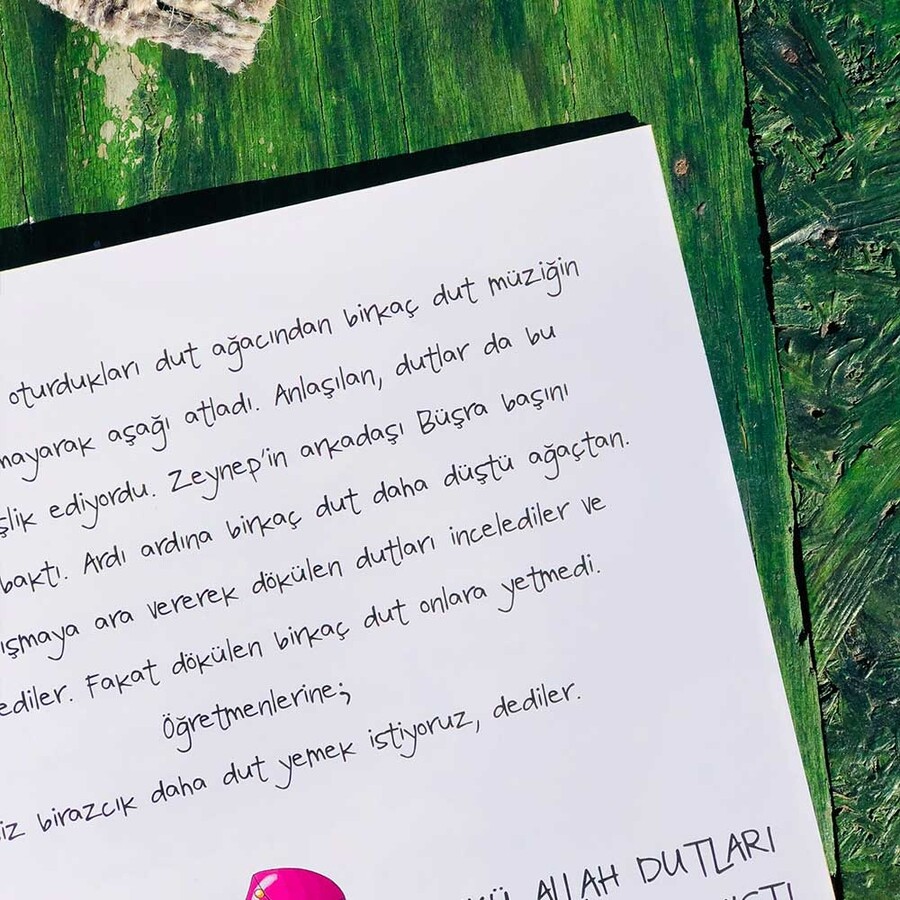 oturdukları dut ağacından birkaç dut müziğin
mayarak aşağı atladı. Anlaşılan, dutlar da bu
şlik ediyordu. Zeynep'in arkadaşı Büşra başını
baktı. Ardı ardına birkaç dut daha düştü ağaçtan.
ışmaya ara vererek dökülen dutları incelediler ve
ediler. Fakat dökülen birkaç dut onlara yetmedi.
Öğretmenlerine;
iz birazcık daha dut yemek istiyoruz, dediler.
ALLAH DUTLARI